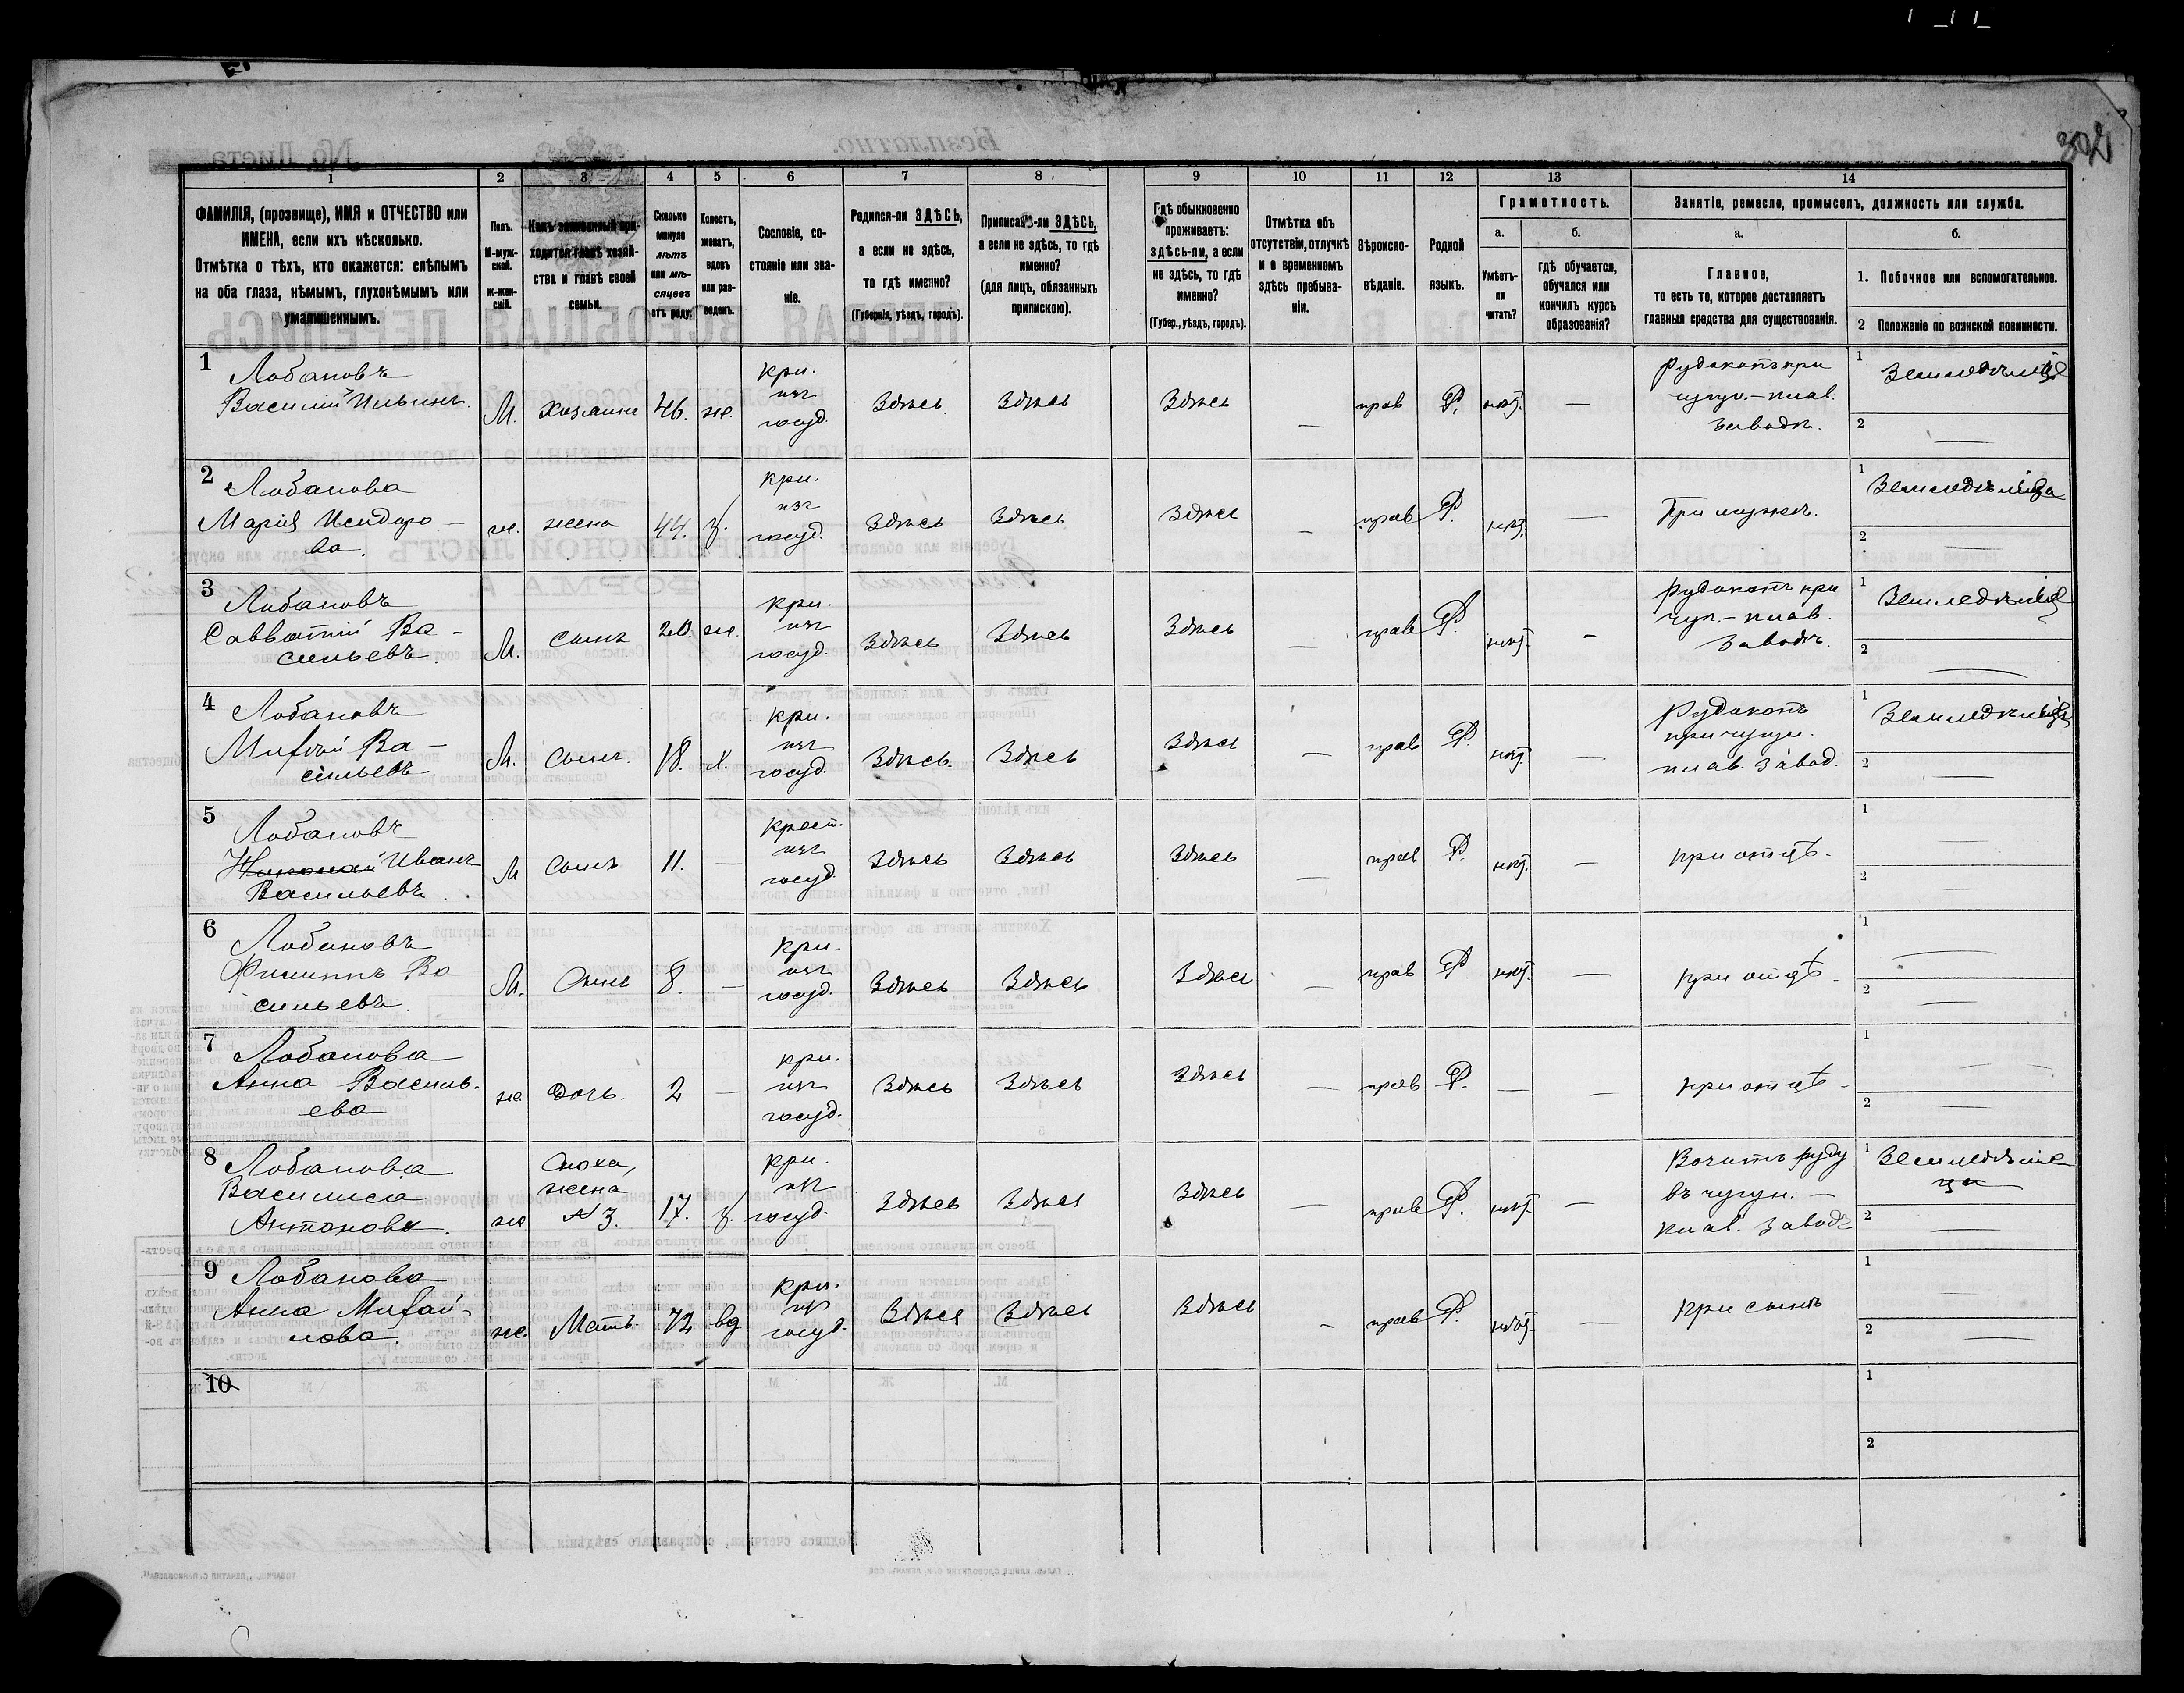 302
1
2
3
4
5
6
7
8
9
10
11
12
13
14
ФАМИЛІЯ, (прозвище), ИМЯ и ОТЧЕСТВО или
ИМЕНА, если ихъ нѣсколько.
Отмѣтка о тѣхъ, кто окажется: слѣпымъ
на оба глаза, нѣмымъ, глухонѣмымъ или
умалишеннымъ.
Полъ.
М-муж-
ской.
ж-жен-
скій.
Какъ записанный при-
ходится главѣ хозяй-
ства и главѣ своей
семьи.
Сколько
минуло
лѣтъ
или мѣ-
сяцевъ
отъ роду.
Холостъ,
женатъ,
вдовъ
или раз-
веденъ.
Сословіе, со-
стояніе или зва-
ніе.
Родился-ли ЗДѢСЬ,
а если не здѣсь,
то гдѣ именно?
(Губернія, уѣздъ, городъ).
Приписанъ-ли ЗДѢСЬ,
а если не здѣсь, то гдѣ
именно?
(для лицъ, обязанныхъ
припискою).
Гдѣ обыкновенно
проживаетъ:
здѣсь-ли, а если
не здѣсь, то гдѣ
именно?
(Губер., уѣздъ, городъ).
Отмѣтка объ
отсутствіи, отлучкѣ
и о временномъ
здѣсь пребыва-
ніи.
Вѣроиспо-
вѣданіе.
Родной
языкъ.
Грамотность.
а.
Умѣетъ-
ли
читать?
б.
гдѣ обучается,
обучался или
кончилъ курсъ
образованія?
Занятіе, ремесло, промыселъ, должность или служба.
а.
Главное,
то есть то, которое доставляетъ
главныя средства для существованія.
б.
1. Побочное или вспомогательное.
2 Положеніе по воинской повинности.
1
Лобановъ
Василій Ильинъ.
М. хозяинъ 46. ж.
кри.
изъ
госуд.
Здѣсь Здѣсь Здѣсь — прав Р. нѣт. —
Рудокопъ при
чугун.-плав.
заводѣ.
1 Земледѣлецъ
2 —
2
Лобанова
Марія Исидоро-
ва.
ж. жена 44. з.
кри.
изъ
госуд.
Здѣсь Здѣсь Здѣсь — прав Р. нѣт. —
При мужѣ.
1
2 —
3
Лобановъ
Савватій Ва-
сильевъ.
М. сынъ 20. ж.
кри.
изъ
госуд.
Здѣсь Здѣсь Здѣсь — прав Р. нѣт. —
Рудокопъ при
чуг.-плав.
заводѣ.
1 Земледѣлецъ
2 —
4
Лобановъ
Ва-
сильевъ
М. Сынъ. 18. х.
кри.
изъ
госуд.
Здѣсь. Здѣсь Здѣсь — прав Р. нѣт. —
Рудокопъ
при чугун.
плав. завод.
1 Земледѣлецъ
2 —
5
Лобановъ
Николай Иванъ
Васильевъ.
М Сынъ 11. —
крест.
изъ
госуд.
Здѣсь Здѣсь Здѣсь — прав Р. нѣт. —
при отцѣ.
1
2 —
6
Лобановъ
Филиппъ Ва
сильевъ.
М. Сынъ 8. —
кри.
изъ
госуд.
Здѣсь Здѣсь Здѣсь — прав Р. нѣт. —
при отцѣ
1 —
2 —
7
Лобанова
Анна Василь-
ева
ж. дочь. 2 —
кри.
изъ
госуд.
Здѣсь Здѣсь Здѣсь — прав Р. — —
при отцѣ
1
2 —
8
Лобанова
Василиса
Антонова.
ж
Сноха,
жена
№3.
17. з.
кри.
изъ
госуд.
Здѣсь Здѣсь Здѣсь — прав Р. нѣт. —
Возитъ руду
въ чугун.-
плав. заводъ
1
2 —
9
Лобанова
Анна Михай-
лова.
ж. Мать. 72 вд
кри.
изъ
госуд.
Здѣсь Здѣсь Здѣсь — прав Р. нѣт. —
при сынѣ
1
2 —
10
1
2